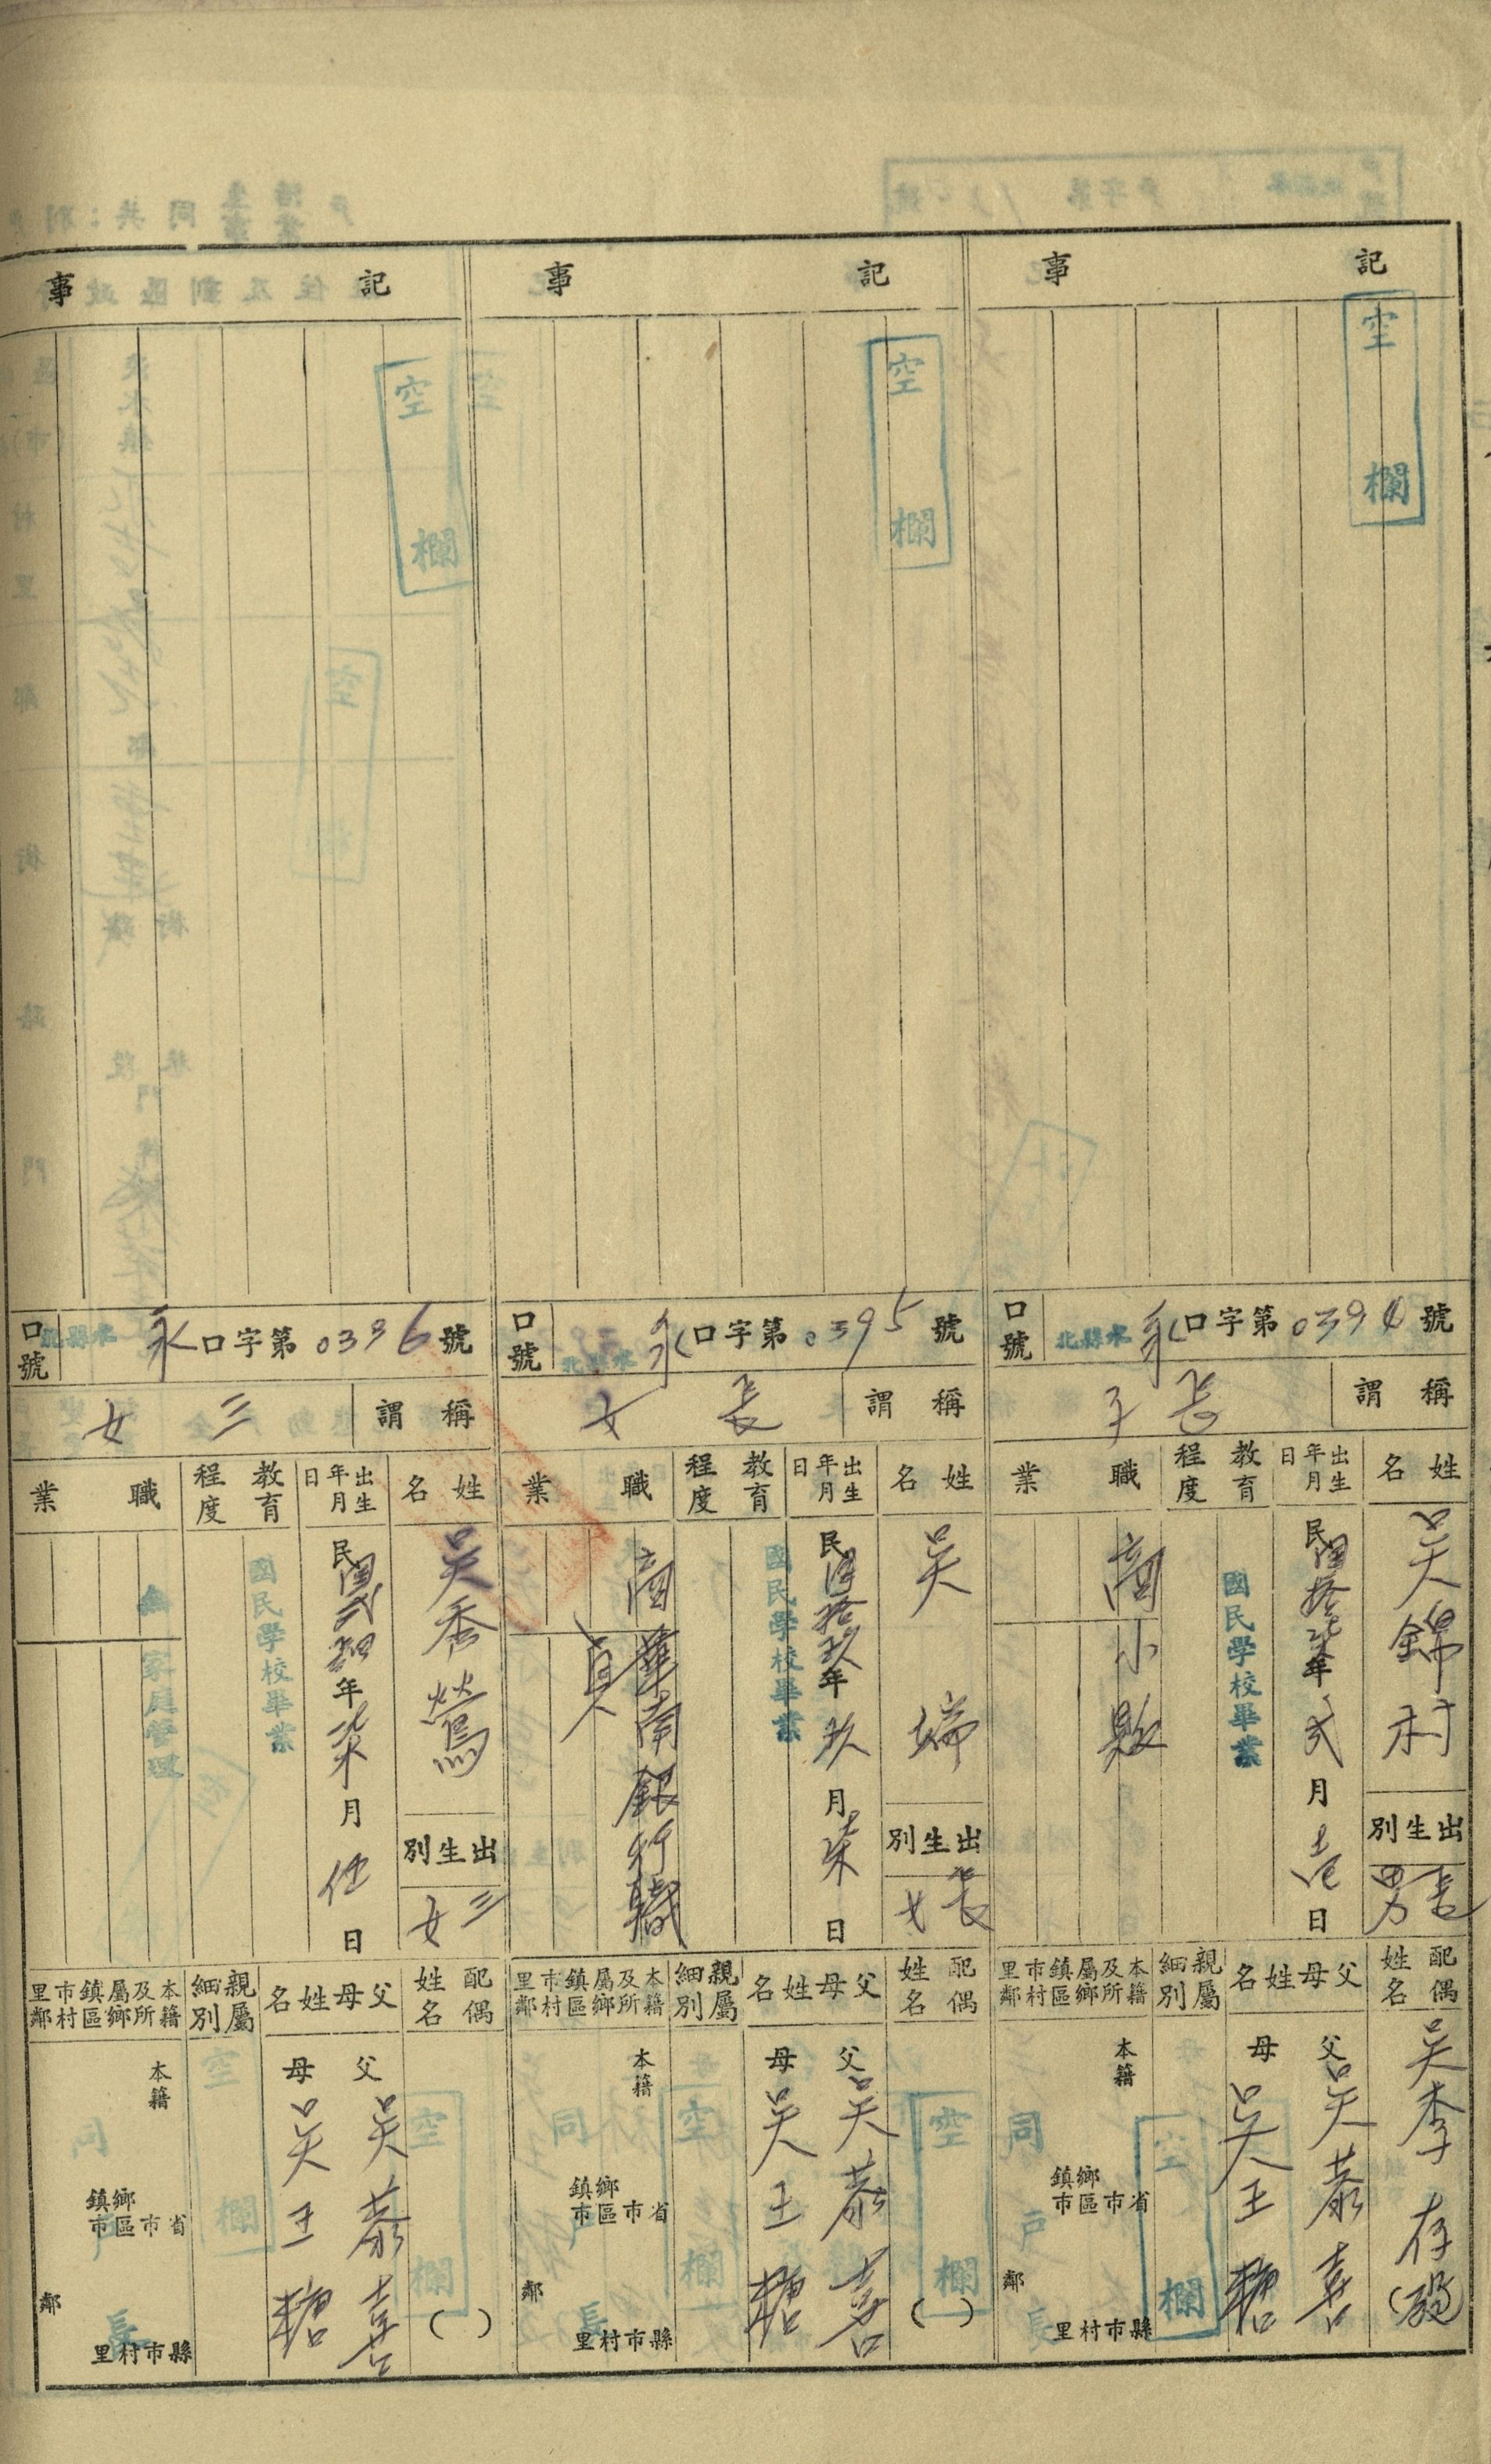 記事
空欄
口號 北縣水 永口字第0394號
稱謂 長子
姓名 吳錦村
出生別 長男
出生年月日 民國拾柒年弍月壱日
教育程度 國民學校畢業
職業 商 小販
配偶姓名 吳李存(歿)
父母姓名 父 吳恭喜 母 吳王糖
親屬細別 空欄
本籍及所屬鄉鎮區市村里鄰 本籍 省市 縣市 鄉鎮區市 村里 鄰 同戶長
記事
空欄
口號 北縣水 永口字第0395號
稱謂 長女
姓名 吳
出生別 長女
出生年月日 民國拾玖年玖月柒日
教育程度 國民學校畢業
職業 商 華南銀行職員
配偶姓名 空欄 ( )
父母姓名 父 吳恭喜 母 吳王糖
親屬細別 空欄
本籍及所屬鄉鎮區市村里鄰 本籍 省市 縣市 鄉鎮區市 村里 鄰 同戶長
記事
空欄
口號 北縣水 永口字第0396號
稱謂 三女
姓名 吳秀鶯
出生別 三女
出生年月日 民國弍拾四年柒月伍日
教育程度 國民學校畢業
職業 無 家庭管理
配偶姓名 空欄 ( )
父母姓名 父 吳恭喜 母 吳王糖
親屬細別 空欄
本籍及所屬鄉鎮區市村里鄰 本籍 省市 縣市 鄉鎮區市 村里 鄰 同戶長